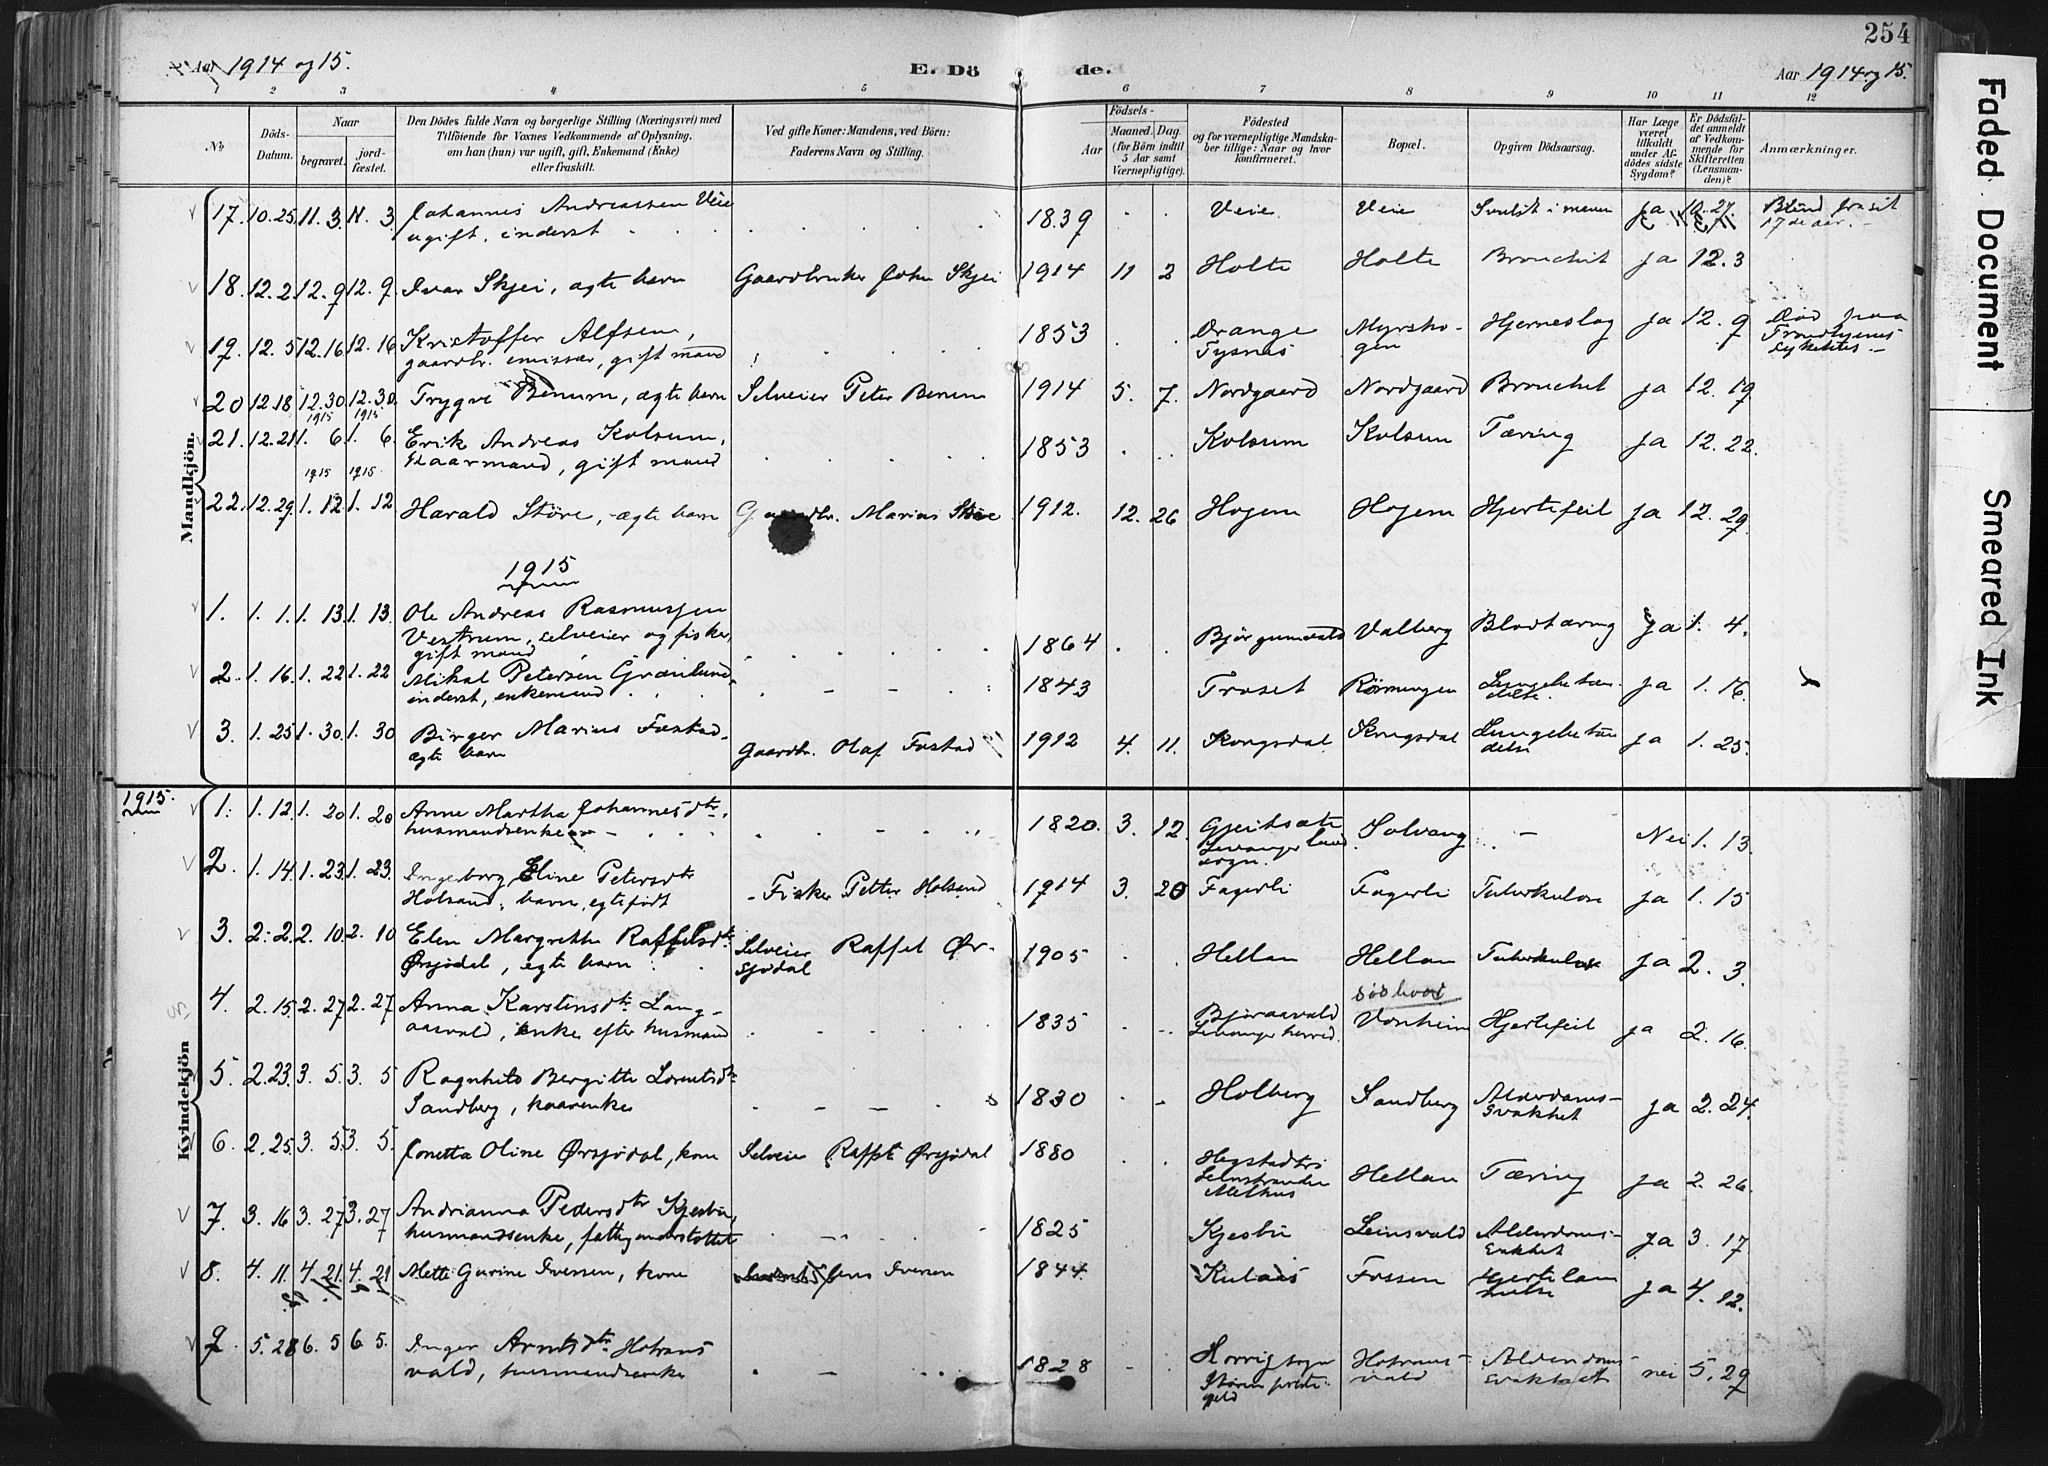 254
Aar 1914 og 15.
E. Dö de.
Aar 1914 og 15.
1 2 3 4 5 6 7 8 9 10 11 12
No
Döds-Datum.
Naar
begravet.
jord-fæstet.
Den Dödes fulde Navn og borgerlige Stilling (Næringsvei) med
Tilföiende for Voxnes Vedkommende af Oplysning,
om han (hun) var ugift, gift, Enkemand (Enke)
eller fraskilt.
Ved gifte Koner: Mandens, ved Börn:
Faderens Navn og Stilling.
Födsels-
Aar
Maaned. Dag.
(for Börn indtil
5 Aar samt
Værnepligtige).
Födested
og for værnepligtige Mandska-
ber tillige: Naar og hvor
konfirmeret.
Bopæl.
Opgiven Dödsaarsag.
Har Læge
været
tilkaldt
under Af-
dödes sidste
Sygdom?
Er Dödsfal-
det anmeldt
af Vedkom-
mende for
Skifteretten
(Lensman-
den)?
Anmærkninger.
Mandkjön.
17. 10.25. 11.3. 11.3. Johannes Andreassen Veie 1839 Veie Veie Svulst i maven Ja 10.27. Blind fra sit
ugift. inderst 17de aar.
18. 12.2. 12.9. 12.9. Ivar Skjei, ægte barn Gaardbruker John Skjei 1914 11 2 Holte Holte Bronchit Ja 12.3
19. 12.5. 12.16. 12.16 Kristoffer Alfsen, 1853 Drange Myrsho- Hjerneslag Ja 12.9 Død paa
gaardbr. emissær, gift mand Tysnes gen Trondhjems
sykehus
20 12.18. 12.30 12.30. Trygve Benum, ægte barn Selveier Peter Benum 1914 5. 7. Nordgaard Nordgaard Bronchit Ja 12.19
1915 1915
21. 12.21 1. 6 1. 6. Erik Andreas Kolsum, 1853 Kolsum Kolsum Tæring Ja 12.22.
Kaarmand, gift mand
1915 1915
22. 12.29. 1.12 1.12 Harald Störe, ægte barn Gaardbr. Marius Störe 1912. 12. 26 Hojem Hojem Hjertefeil Ja 12.29.
1915
1. 1.1. 1.13 1.13. Ole Andreas Rasmussen
Vestrum, selveier og fisker, 1864 Valberg Blodtæring Ja 1.4.
gift mand
2. 1.16. 1.22 1.22 Mikal Petersen Grønlund, 1843 Troset Lungebetæn- Ja 1.16.
inderst, enkemand delse.
3. 1.25 1.30. 1.30 Birger Marius Fostad, Gaardbr. Olaf Fostad 1912 4. 11. Kongsdal Kongsdal Lungebetæn Ja 1.25.
ægte barn delse
1915.
Kvindekjön
1. 1.12. 1.20 1.20 Anne Martha Johannesdtr. 1820. 3. 12. Solvang Nei 1.13.
husmandsenke Levanger land
sogn.
2. 1.14. 1.23. 1.23. Ingeborg Eline Petersdtr Fisker Petter Holsand 1914 3. 20 Fagerli Fagerli Tuberkulose Ja 1.15
Holsand, barn, egtefødt
3. 2.2. 2.10 2.10 Elen Margrethe Raffelsdtr. Selveier Raffel Ør- 1905 Hellan Hellan Tuberkulose Ja 2.3.
Ørsjødal, egte barn sjødal
4. 2.15. 2.27 2.27 Anna Karstensdtr Lang- 1835 Bjøraavald Vonheim Hjertefeil Ja 2.16.
aasvald, enke efter husmand Levanger herred.
5. 2.23. 3.5. 3.5 Ragnhild Bergitte Lorentsdtr 1830 Holberg Sandberg Alderdoms- Ja 2.24.
Sandberg, kaarenke svakhet
6. 2.25. 3.5 3.5. Jonetta Oline Ørsjødal, kone Selveier Raffel Ørsjødal 1880 Hellan Tæring Ja 2.26.
Leinstranden
Melhus
7. 3.16 3.27 3.27 Andrianna Pedersdtr Kjesbu, 1825 Kjesbu Leinsvald Alderdoms- Ja 3.17
husmandsenke, fattigunderstøttet svakhet
8. 4.11. 4.21. 4.21 Mette Gurine Iversen, kone Jens Iversen 1844. Kulaas Fossen Ja 4.12.
9. 5.28 6.5 6.5. Inger Arntsdtr Hotrans 1828 Horrig sogn Hotrans- Alderdoms- nei 5.29
vald, husmandsenke Støren preste- vald svakhet
gjeld
Faded Document
Smeared Ink